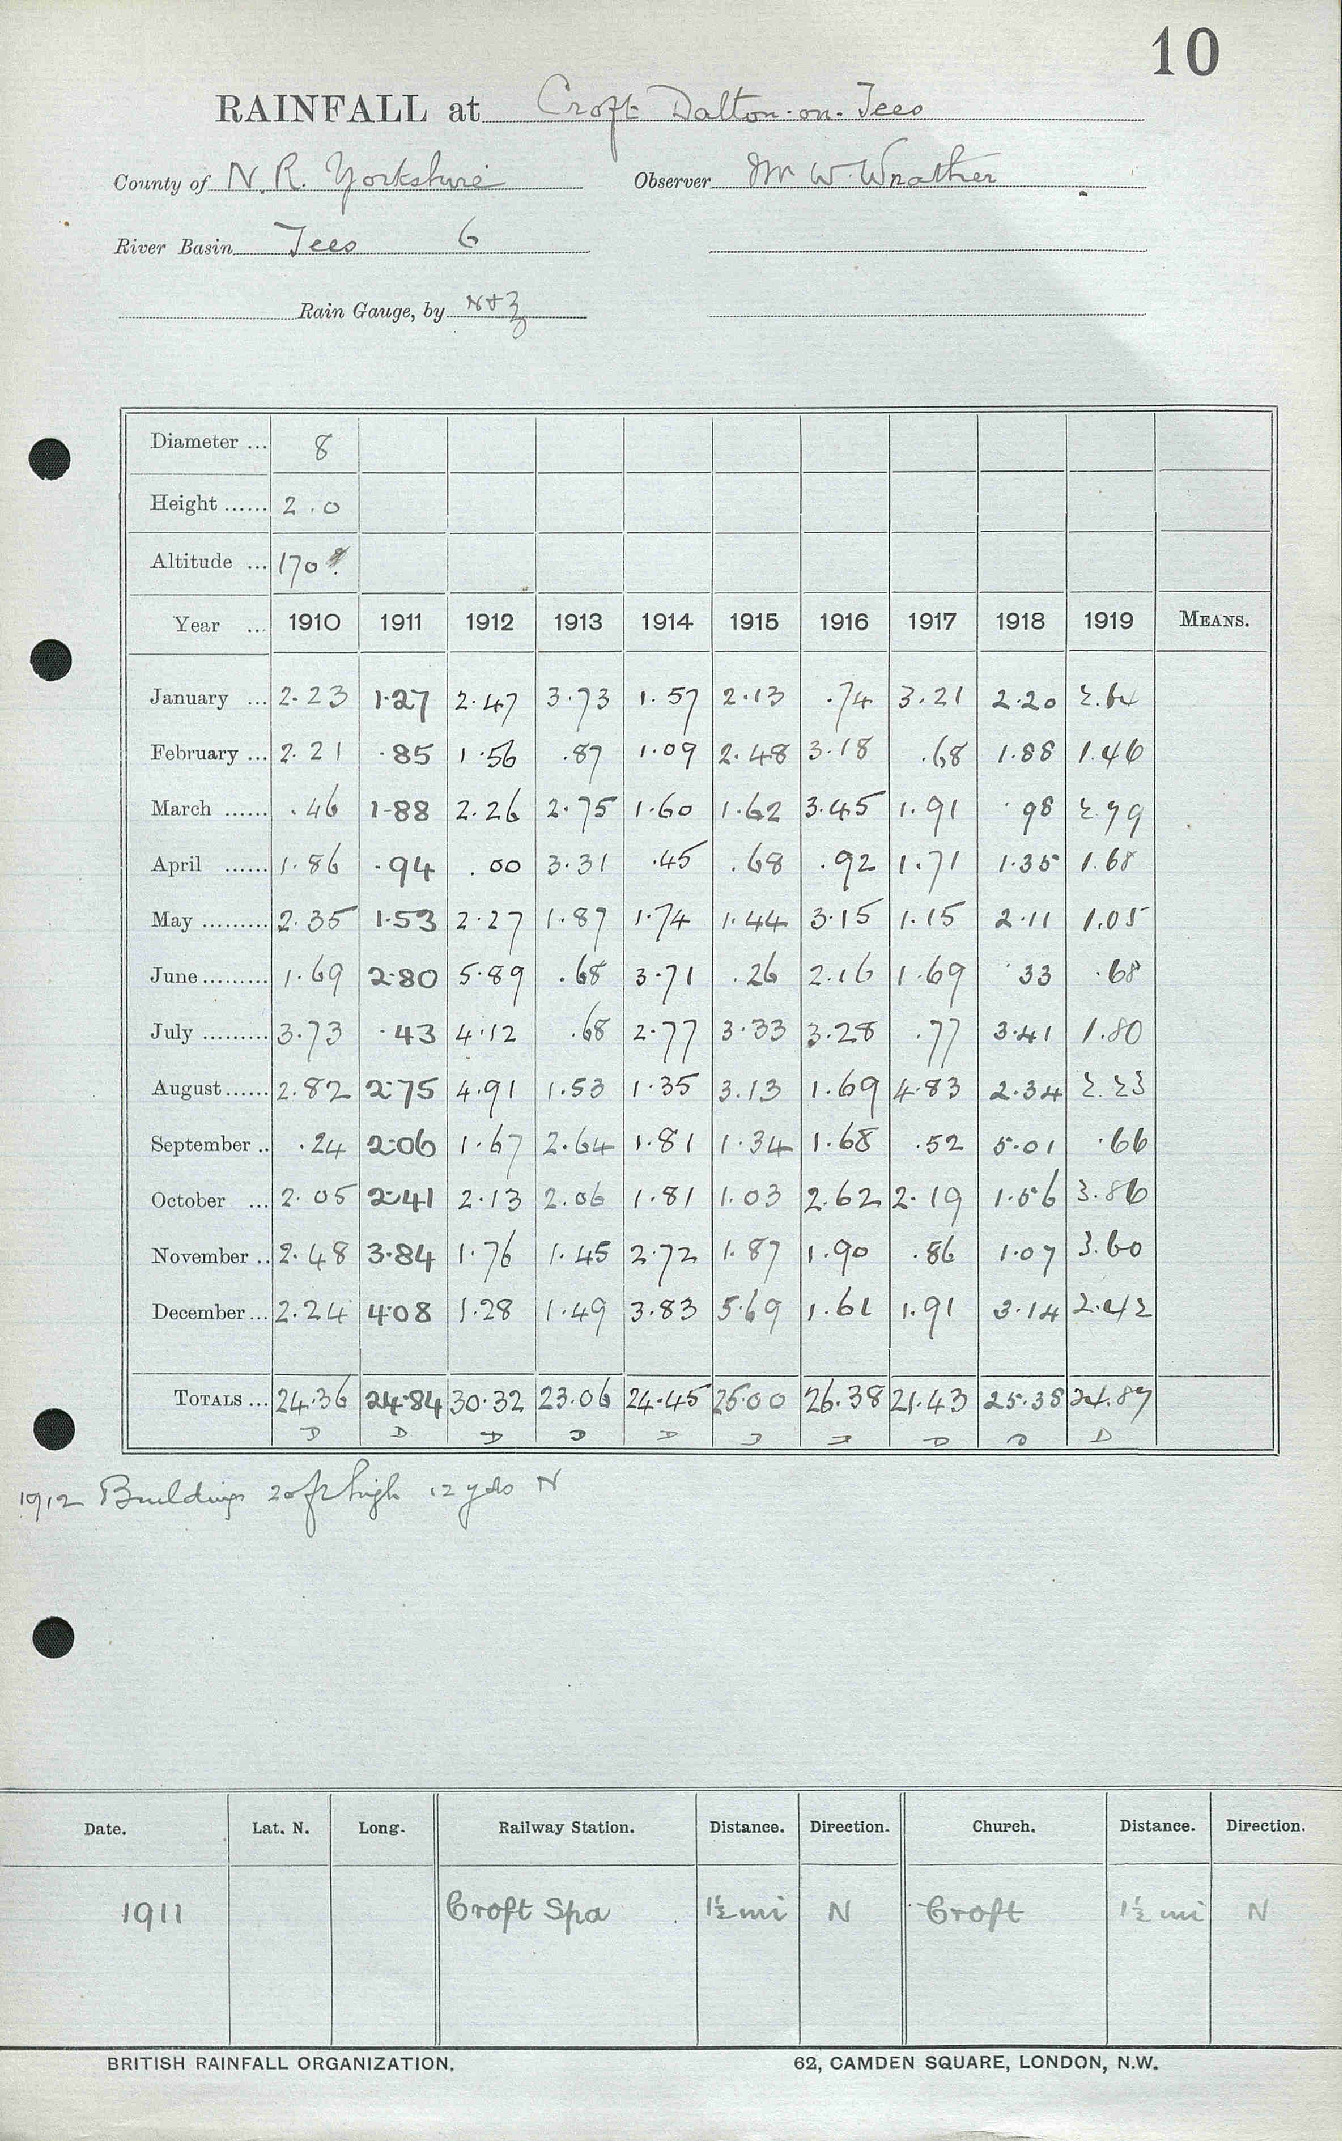 10
RAINFALL at Croft Dalton-on-Tees
County of N.R. Yorkshire Observer Mr W. Wrather
River Basin Tees 6
Rain Gauge, by N+Z
Diameter ... 8
Height ...... 2.0
Altitude ... 170
Year ... 1910 1911 1912 1913 1914 1915 1916 1917 1918 1919 MEANS.
January ... 2.23 1.27 2.47 3.73 1.57 2.13 .74 3.21 2.20 2.64
February ... 2.21 .85 1.56 .87 1.09 2.48 3.18 .68 1.88 1.46
March ...... .46 1.88 2.26 2.75 1.60 1.62 3.45 1.91 .98 2.79
April ...... 1.86 .94 .00 3.31 .45 .68 .92 1.71 1.35 1.68
May ......... 2.35 1.53 2.27 1.87 1.74 1.44 3.15 1.15 2.11 1.05
June ......... 1.69 2.80 5.89 .68 3.71 .26 2.16 1.69 .33 .68
July ......... 3.73 .43 4.12 .68 2.77 3.33 3.28 .77 3.41 1.80
August ...... 2.82 2.75 4.91 1.53 1.35 3.13 1.69 4.83 2.34 2.23
September .. .24 2.06 1.67 2.64 1.81 1.34 1.68 .52 5.01 .66
October ... 2.05 2.41 2.13 2.06 1.81 1.03 2.62 2.19 1.56 3.86
November .. 2.48 3.84 1.76 1.45 2.72 1.87 1.90 .86 1.07 3.60
December ... 2.24 4.08 1.28 1.49 3.83 5.69 1.61 1.91 3.14 2.42
TOTALS ... 24.36 24.84 30.32 23.06 24.45 25.00 26.38 21.43 25.38 24.87
D D D D D D D D D D
1912 Buildings 20ft high 12 yds N
Date. Lat. N. Long. Railway Station. Distance. Direction. Church. Distance. Direction.
1911 Croft Spa 1½ mi N Croft 1½ mi N
BRITISH RAINFALL ORGANIZATION. 62, CAMDEN SQUARE, LONDON, N.W.